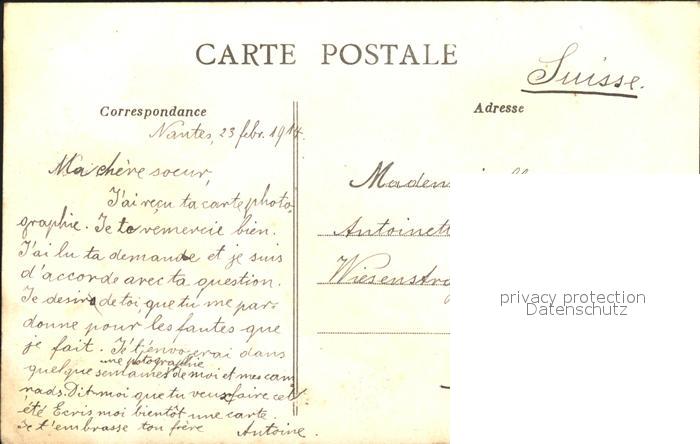 CARTE POSTALE
Suisse.
Correspondance
Adresse
Nantes, 23 febr. 1914.
Ma chère soeur,
J'ai reçu ta carte photo-
graphie. Je te remercie bien.
J'ai lu ta demande et je suis
d'accorde avec ta question.
Je desire de toi que tu me par-
donne pour les fautes que
je fait. Je t'envoierai dans
une photographie
quelque semaines de moi et mes cam
rads. Dit moi que tu veux faire cet
été Ecris moi bientôt une carte.
Je t'embrasse ton frère Antoine.
Madem
Antoinett
Wiesenstra
privacy protection
Datenschutz